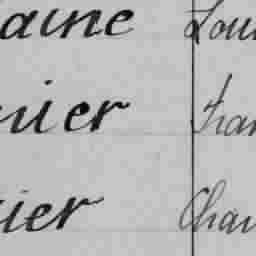 aine Loui
uier Fran
ier Char